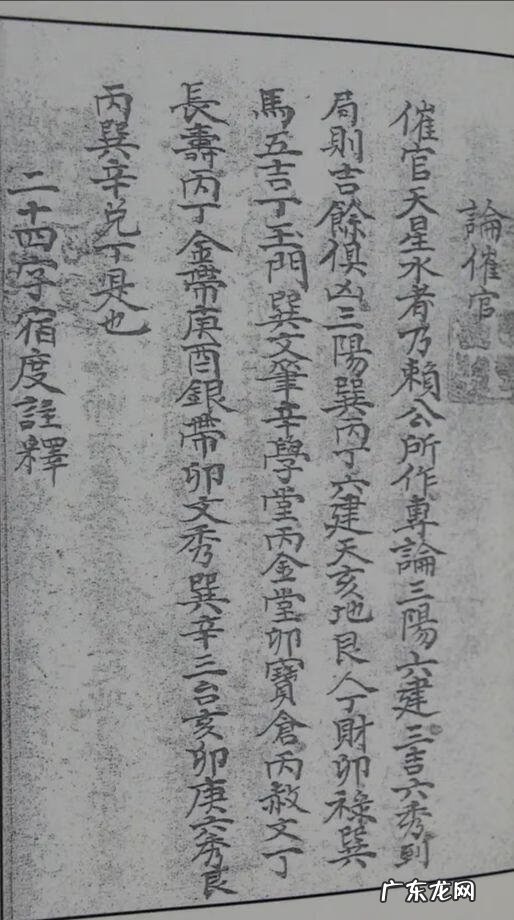 論催官
催官天星水者乃賴公所作專論三陽六建三吉六秀到
局則吉餘俱凶三陽巽丙丁六建天亥地艮人丁財卯祿巽
馬五吉丁玉門巽文筆辛學堂丙金堂卯寶倉丙赦文丁
長壽丙丁金帶庚酉銀帶卯文秀巽辛三台亥卯庚六秀艮
丙巽辛兌丁是也
二十四字宿度註釋
广东龙网